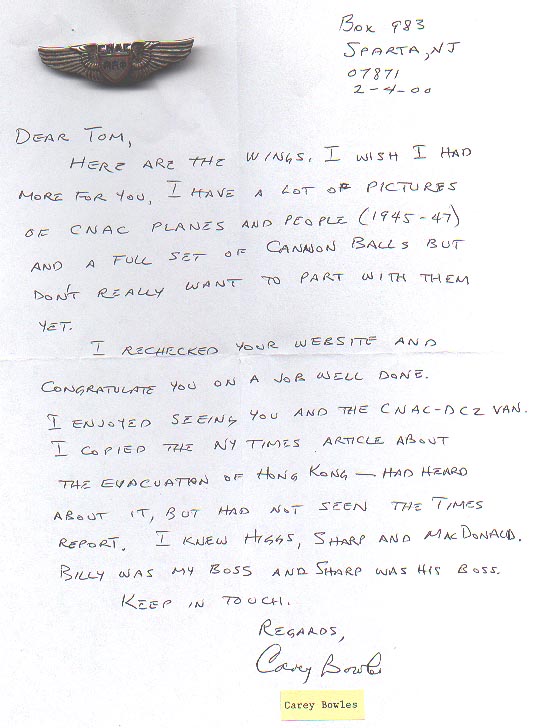 CNAC
Box 983
SPARTA, NJ
07871
2-4-00
DEAR TOM,
HERE ARE THE WINGS. I WISH I HAD
MORE FOR YOU, I HAVE A LOT OF PICTURES
OF CNAC PLANES AND PEOPLE (1945-47)
AND A FULL SET OF CANNON BALLS BUT
DON'T REALLY WANT TO PART WITH THEM
YET.
I RECHECKED YOUR WEBSITE AND
CONGRATULATE YOU ON A JOB WELL DONE.
I ENJOYED SEEING YOU AND THE CNAC-DC2 VAN.
I COPIED THE NY TIMES ARTICLE ABOUT
THE EVACUATION OF HONG KONG — HAD HEARD
ABOUT IT, BUT HAD NOT SEEN THE TIMES
REPORT. I KNEW HIGGS, SHARP AND MACDONALD.
BILLY WAS MY BOSS AND SHARP WAS HIS BOSS.
KEEP IN TOUCH.
REGARDS,
Carey Bowles
Carey Bowles